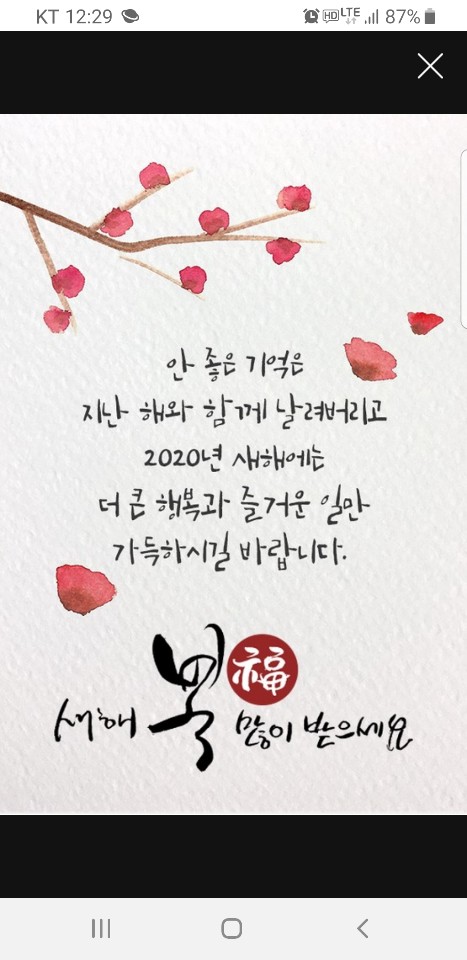 KT 12:29 HD LTE 87%
안 좋은 기억은
지난 해와 함께 날려버리고
2020년 새해에는
더 큰 행복과 즐거운 일만
가득하시길 바랍니다.
새해 복 福 많이 받으세요